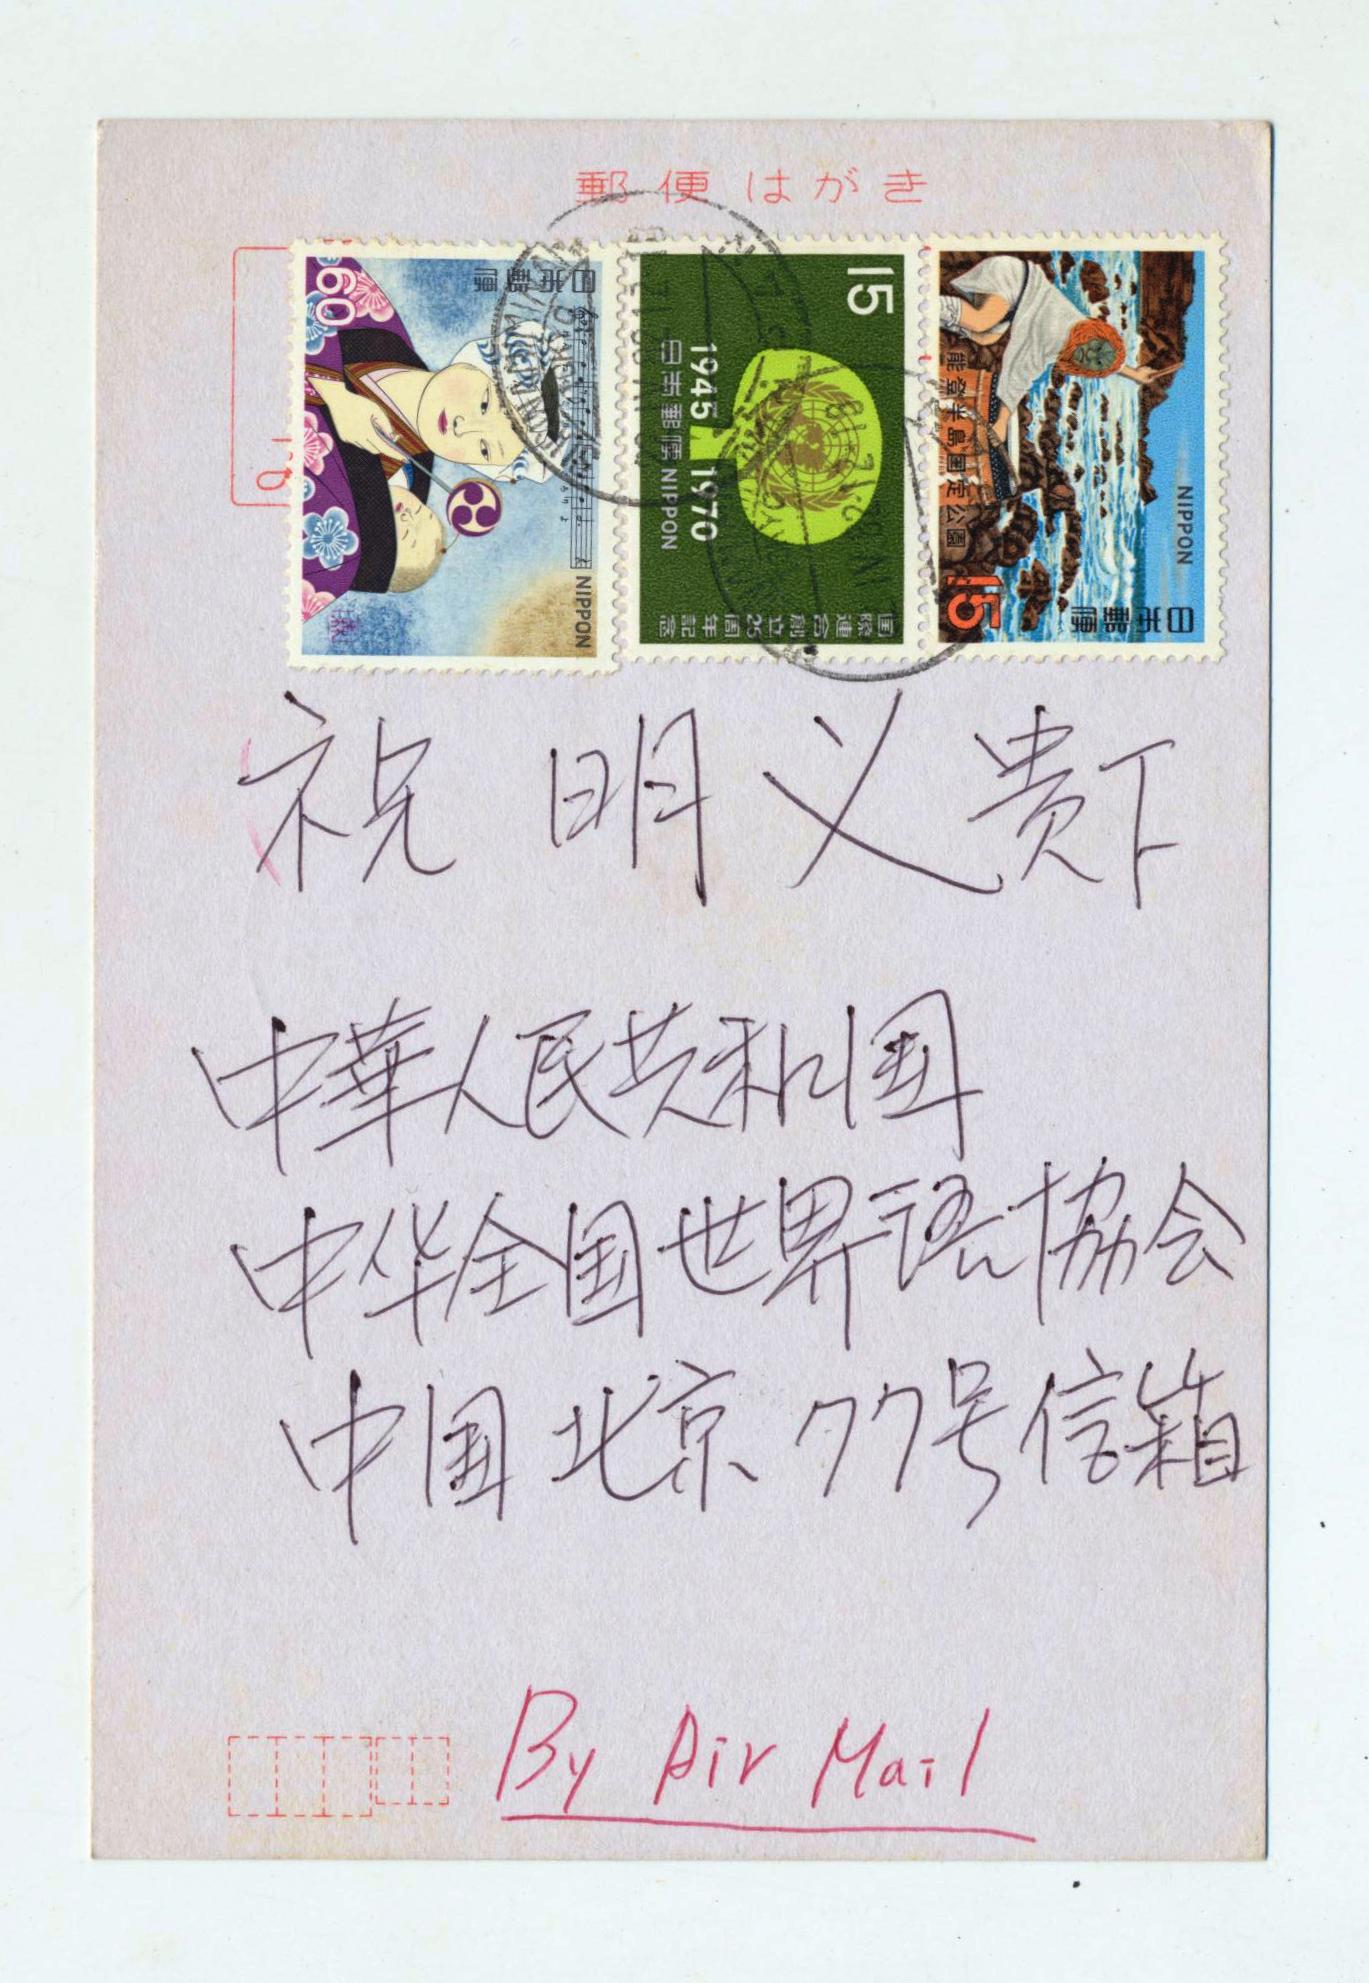 郵便はがき
60
日本郵便
NIPPON
15
1945 1970
日本郵便 NIPPON
国際連合創立25周年記念
能登半島国定公園
NIPPON
15
日本郵便
祝 明 义 贵下
中華人民共和国
中华全国世界语協会
中国北京77号信箱
By Air Mail